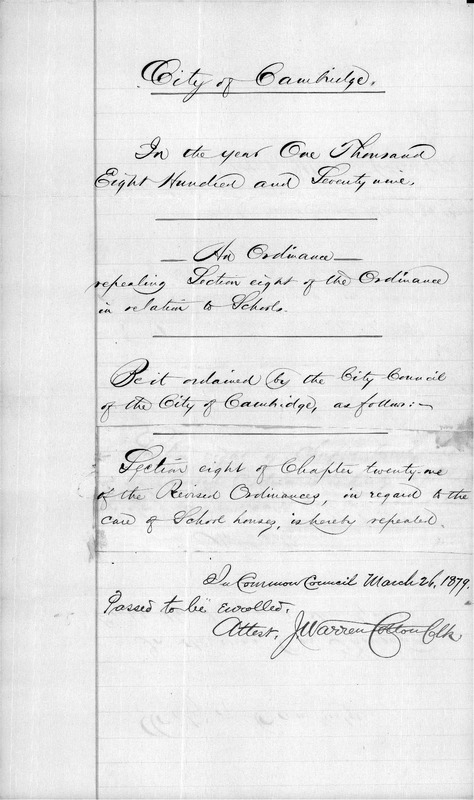 City of Cambridge.
In the year One Thousand
Eight Hundred and Seventy nine.
An Ordinance
repealing Section eight of the Ordinance
in relation to Schools.
Be it ordained by the City Council
of the City of Cambridge, as follows:-
Section eight of Chapter twenty-one
of the Revised Ordinances, in regard to the
care of School houses, is hereby repealed.
In Common Council March 26, 1879.
Passed to be enrolled.
Attest, J. Warren Cotton Clk.